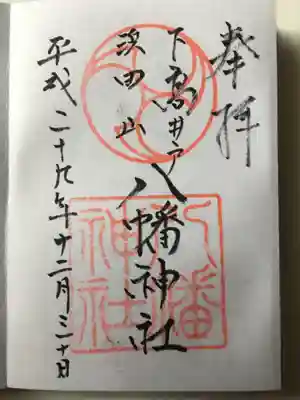 奉拝
下高井戸
八幡神社
浜田山
平成二十九年十二月三十日
八幡
神社